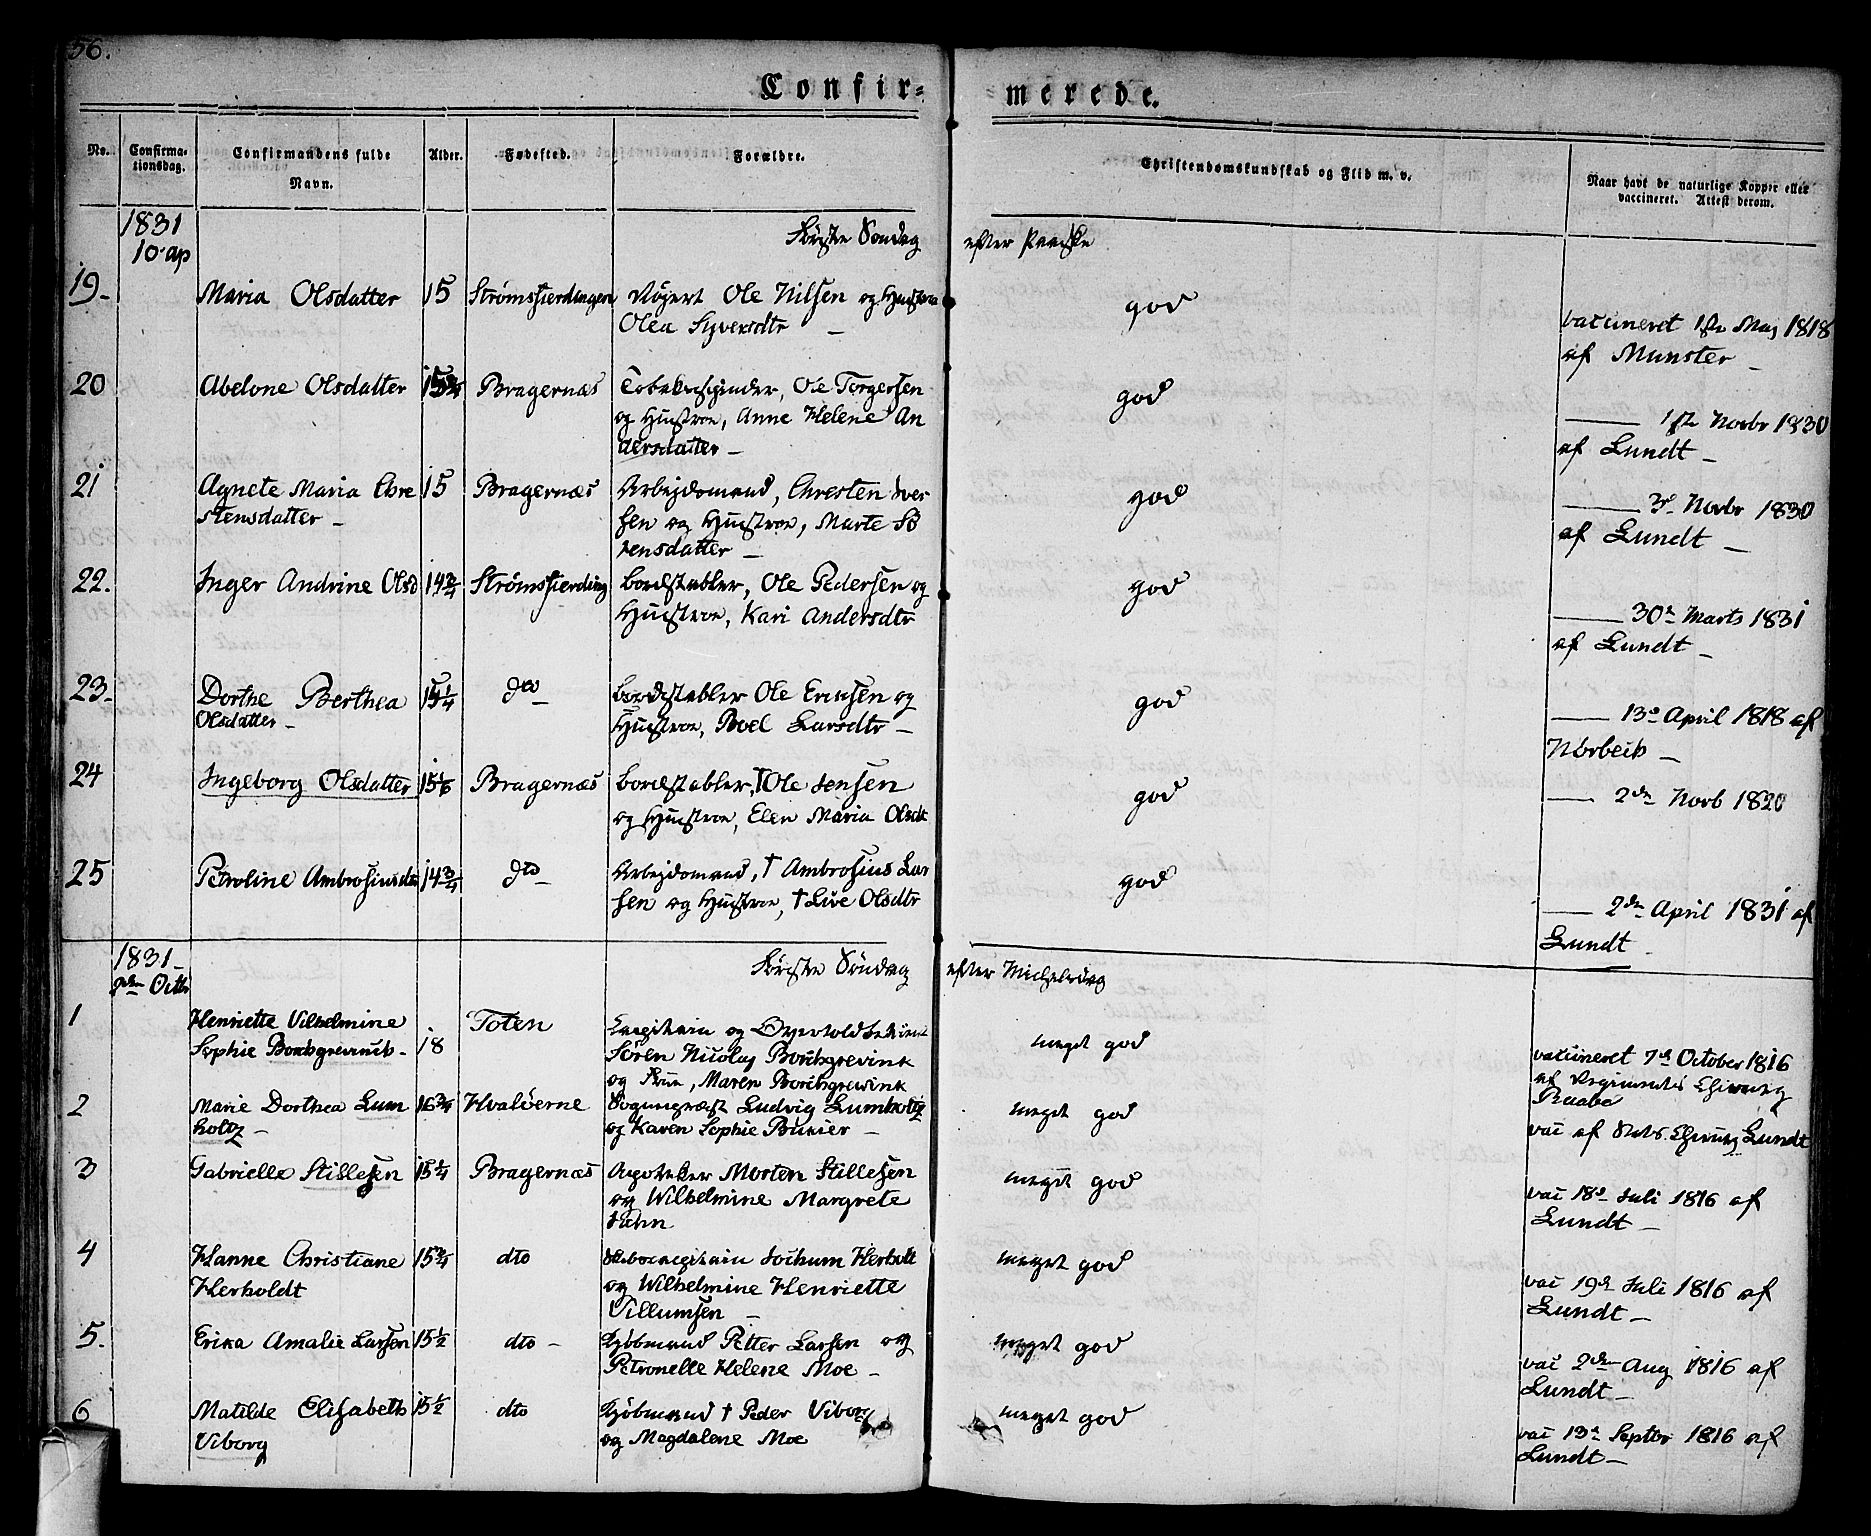 56.
Confir-
merede.
No.
Confirma-
tionsdag.
Confirmandens fulde
Navn.
Alder.
Fødested.
Forældre.
Christendomskundskab og Flid m. v.
Naar havt de naturlige Kopper eller
vaccineret. Attest derom.
1831
10. ap
Første Søndag efter Paaske
19. Maria Olsdatter 15 Strømsfierdingen Røgert Ole Nilsen og Hustroe god
Olea Syversdtr —
vaccineret 1ste Maj 1818
af Munster —
20 Abelone Olsdatter Bragernæs Tobakspinder, Ole Torgersen god
og Hustroe, Anne Helene An
dersdatter —
—— 1ste Novbr 1830
af Lundt —
21 Agnete Maria Chre 15 Bragernæs Arbejdsmand, Chresten Iver god
stensdatter — sen og Hustroe, Marte Sö
rensdatter —
—— 3d Novbr 1830
af Lundt —
22. Inger Andrine Olsd 14 3/4 Strømsfierding Bordstabler, Ole Pedersen og god
Hustroe, Kari Andersdtr
—— 30te Marts 1831
af Lundt —
23. Dorthe Berthea 15 1/4 dto — Bordstabler Ole Ericsen og god
Olsdatter — Hustroe, Boel Larsdtr —
—— 13de April 1818 af
Nörbeck —
24 Ingeborg Olsdatter 15 1/6 Bragernæs Bordstabler, † Ole Jensen god
og Hustroe, Elen Maria Olsdt
—— 2den Novb 1820
25 Petroline Ambrosiusdtr 14 3/4 dto — Arbejdsmand, † Ambrosius Lar god
sen og Hustroe, † Live Olsdtr
—— 2den April 1831 af
Lundt —
1831 —
2den Octbr
Første Søndag efter Michelsdag
1 Henriette Vilhelmine Toten Capitain og Overtoldbetient
Sophie Borchgrevinck — 18 Sören Nicolay Borchgrevink meget god
og Frue, Maren Borchgrewink
vaccineret 7de October 1816
af Regiments Chirurg
Raabe
2 Marie Dorthea Lum 16 3/4 Hvaløerne Sognepræst Ludvig Lumholtz meget god
holtz — og Karen Sophie Bukier —
vac af Stads Chirurg Lundt
3 Gabrielle Stillesen 15 1/4 Bragernæs Apoteker Morten Stillesen meget god
og Wilhelmine Margrete
Hahn
vac 18de Juli 1816 af
Lundt —
4 Hanne Christiane 15 3/4 dto Skibscapitain Jochum Herholt meget god
Herholdt og Wilhelmine Henriette
Villumsen —
vac 19de Juli 1816 af
Lundt —
5. Erika Amalie Larsen 15 1/2 dto — Kjøbmand Petter Larsen og meget god
Petronelle Helene Moe —
vac 2den Aug 1816 af
Lundt —
6 Matilde Elisabeth 15 1/2 dto Kjøbmand † Peder Viborg meget god
Viborg og Magdalene Moe
vac 13de Septbr 1816 af
Lundt —